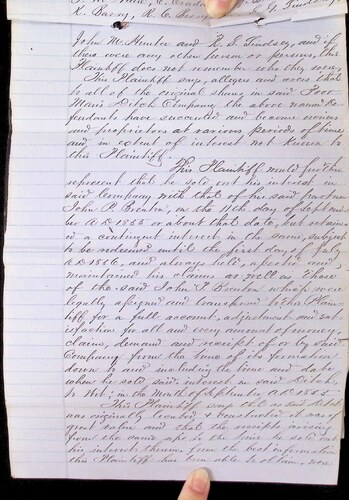 K. Sarny, R. C.
John M. Hunter and R. S. Lindsey, and if
there were any other person or persons, this
Plaintiff does not remember who they were.
This Plaintiff says, alleges and avers that
to all of the original shares in said Poor
Man's Ditch Company the above named De-
fendants have succeeded and become owners
and proprietors at various periods of time
and in extent of interest not known to
this Plaintiff.
This Plaintiff would further
represent that he sold out his interest in
said Company with that of his said partner
John P. Brenton, on the 11th day of Septem-
ber A D 1855 or about that date, but retain-
ed a contingent interest in the same, subject
to be redeemed until the first day of July
A.D. 1856, and always held, asserted and
maintained his claims as well as those
of the said John P. Brenton which were
legally assigned and transferred to this Plain-
tiff for a full account, adjustment and sat-
isfaction for all and every amount of money,
claims, demand and receipt of or by said
Company from the time of its formation
down to and including the time and date
when he sold said interest in said Ditch,
to Wit; in the Month of September A.D. 1855
This Plaintiff says that as said Ditch
was originally located & constructed it was of
great value and that the receipts arising
from the same up to the time he sold out
his interest therein from the best information
this Plaintiff has been able to obtain, were